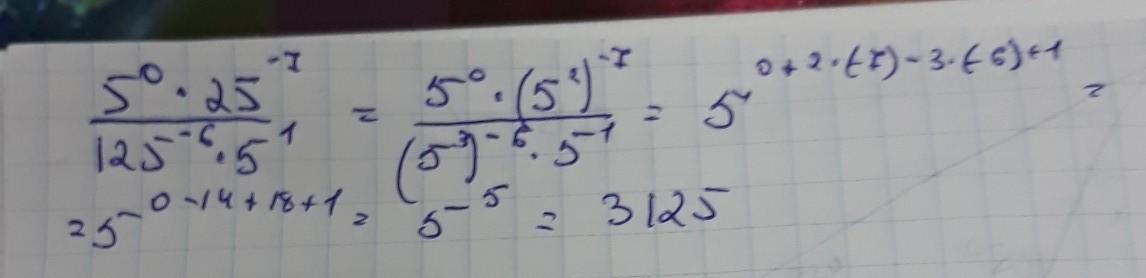 5^0 · 25^-7 / 125^-6 · 5^1 = 5^0 · (5^2)^-7 / (5^3)^-6 · 5^-1 = 5^0+2·(-7)-3·(-6)+1 =
= 5^0-14+18+1 = 5^-5 = 3125